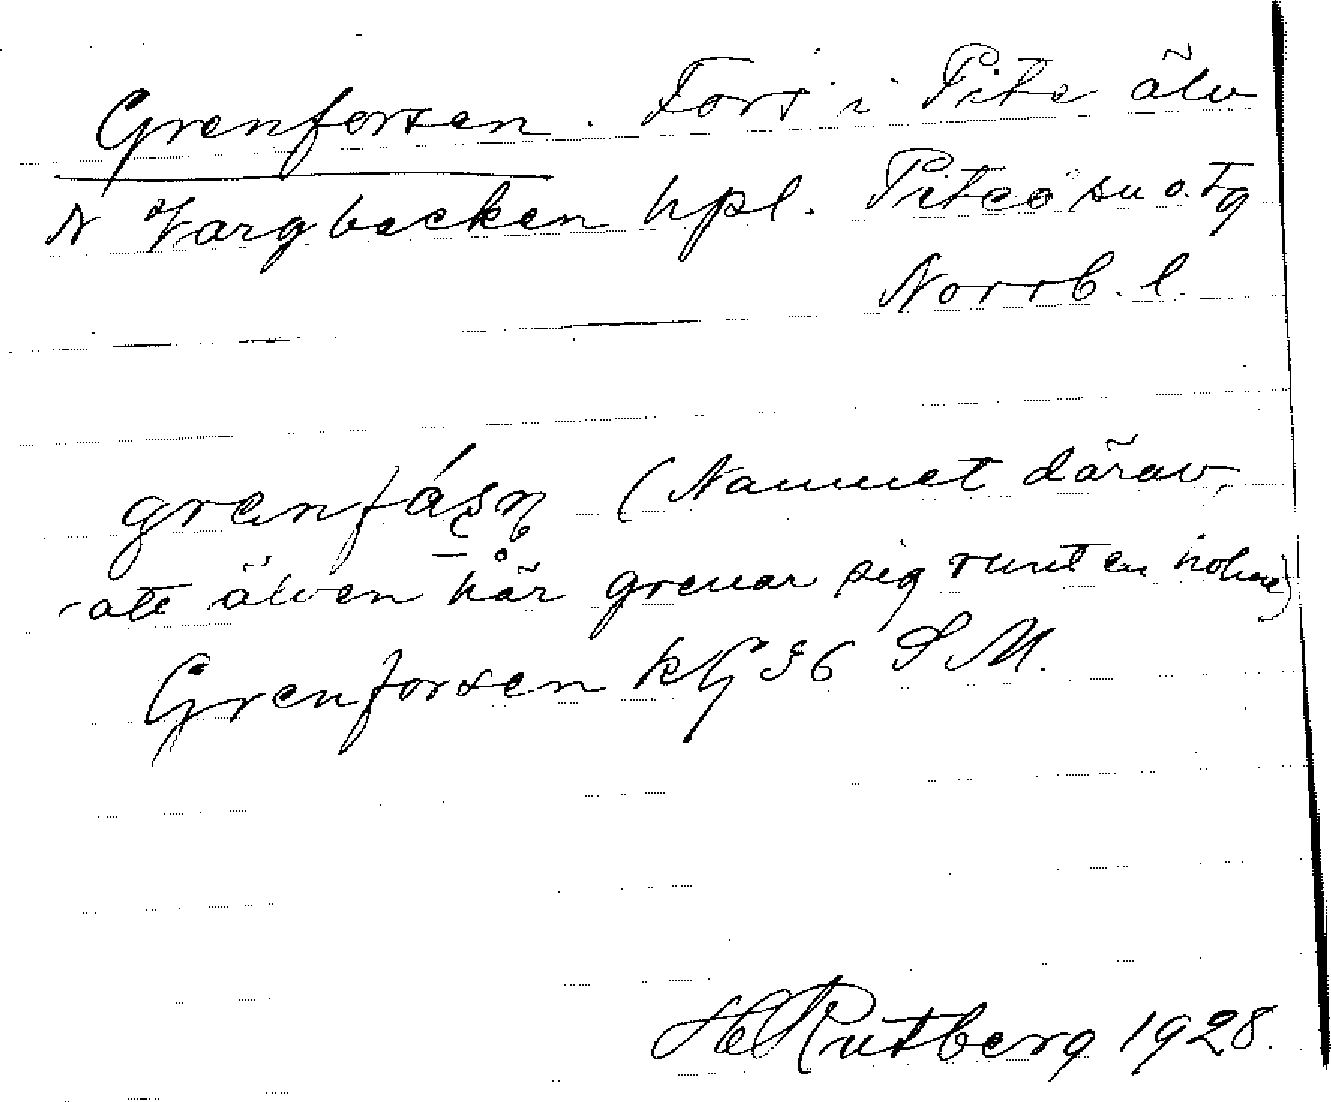 Grenforsen. Fors i Pite älv
N Vargbacken hpl. Piteå sn o. tg
Norrb. l.
grenfáşņ (Namnet därav,
att älven här grenar sig runt en holme)
Grenforsen kG 36 SM.
H Rutberg 1928.